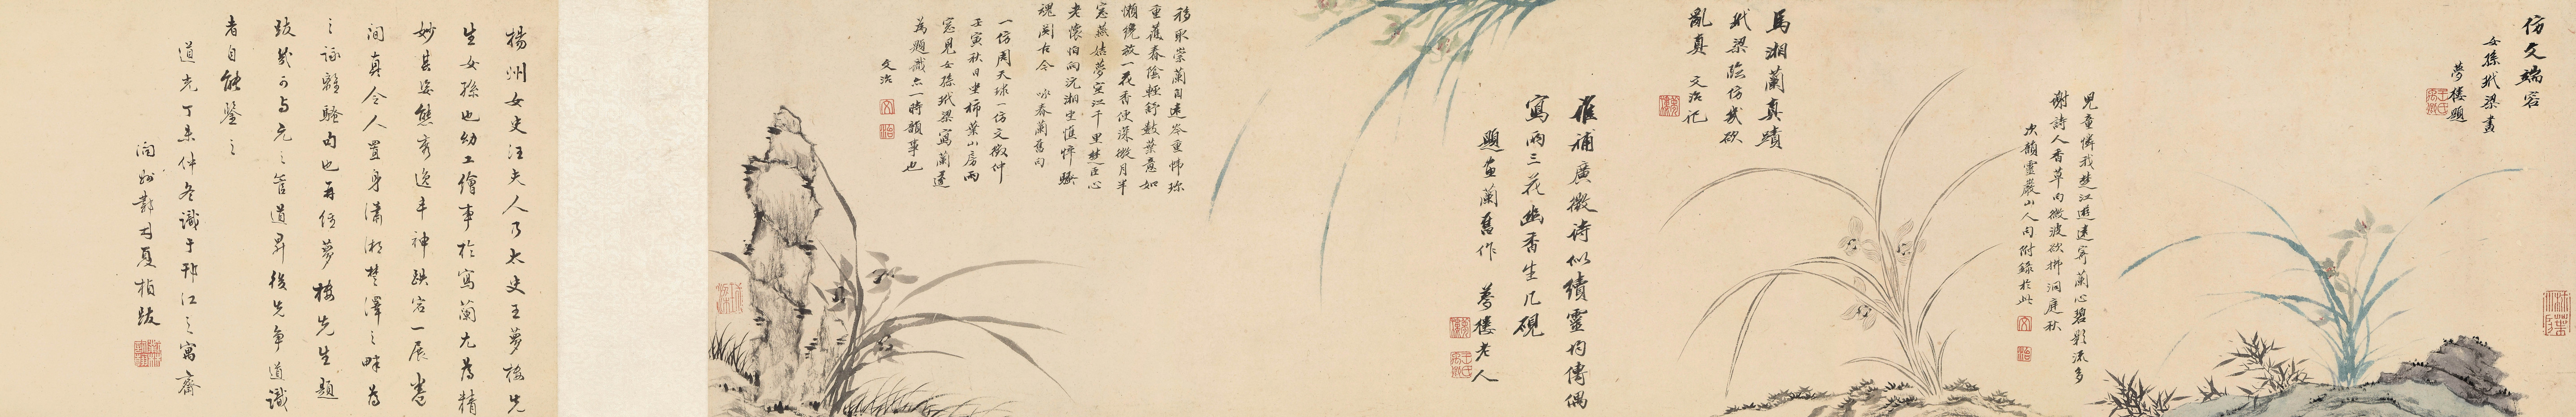 仿文端容
女孫玳梁畫
夢樓題
兒童憐我楚江遊遠寄蘭心碧影流多
謝詩人香草句微波欲拂洞庭秋
次韻靈巖山人句附錄於此
馬湘蘭真蹟
玳梁臨仿幾欲
亂真 文治記
補廣微詩似續靈均傳偶
寫兩三花幽香生几硯
題畫蘭舊作 夢樓老人
移取崇蘭自遠岑重幃珎
重護春陰輕舒數葉意如
懶 放一花香便深微月半
窓燕姞夢空江千里楚臣心
老懷怕向沅湘 憔悴騷
魂閱古今 咏春蘭舊句
一仿周天球一仿文徵仲
壬寅秋日坐柿葉山房雨
窓見女孫玳梁寫蘭遂
為題識亦一時韻事也
文治
楊州女史汪夫人乃太史王夢樓先
生女孫也幼工繪事於寫蘭尤為精
妙其姿態秀逸丰神跌宕一展卷
間真令人置身瀟湘楚澤之畔為
之詠離騷句也再經夢樓先生題
跋幾可與元之管道昇後先爭道識
者自能鑒之
道光丁未仲冬識于邗江之寓齋